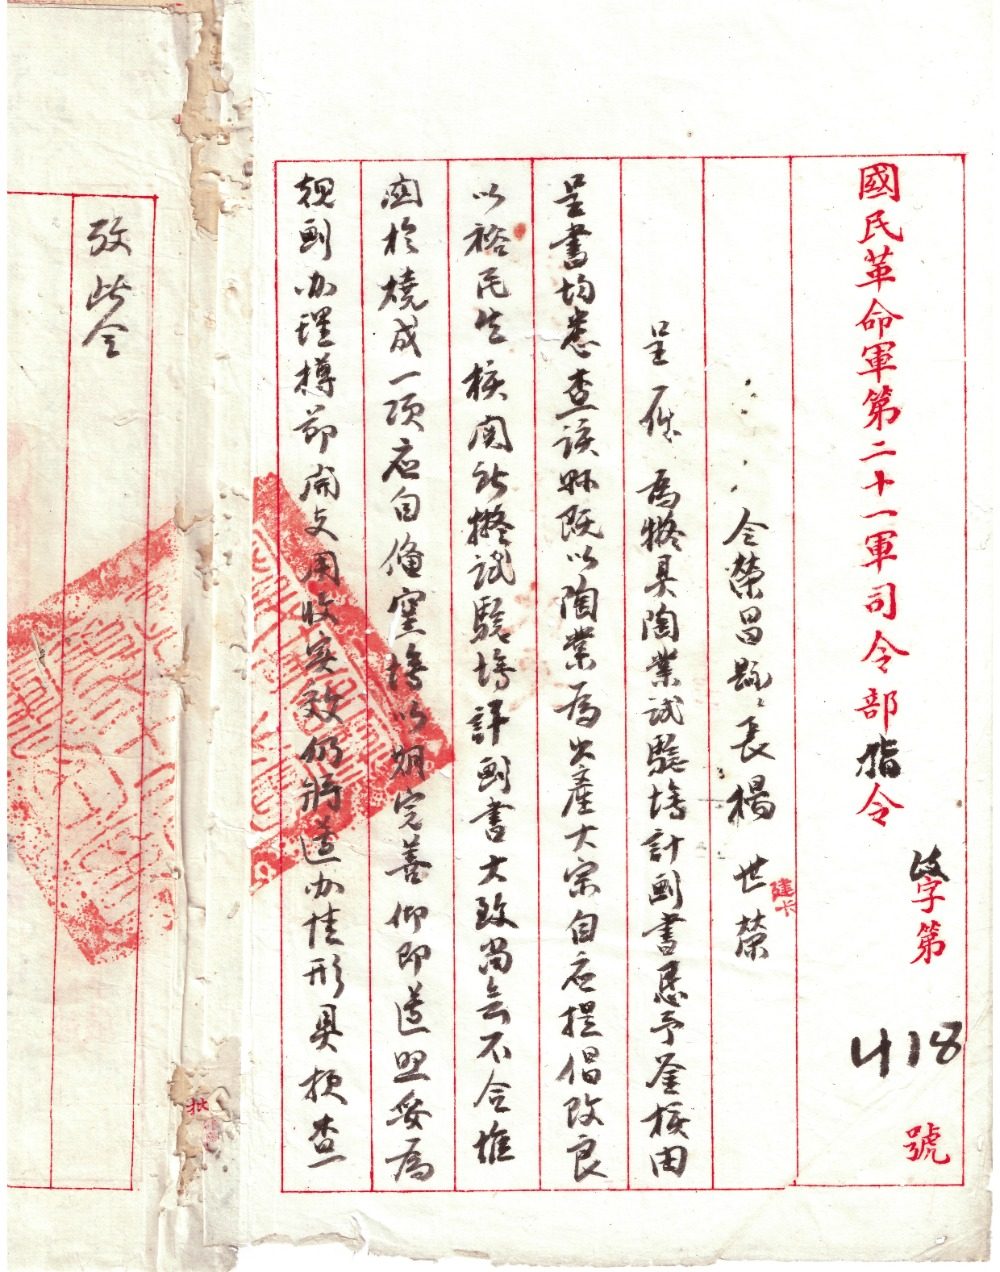 國民革命軍第二十一軍司令部指令
字第418號
令榮昌縣縣長楊世榮
呈一件為擬具陶業試驗場計劃書懇予鑒核由
呈書均悉查該縣既以陶業為出產大宗自應提倡改良
以裕民生核閱所擬試驗場計劃書大致尚無不合惟
關於燒成一項應自備窯場以期完善仰即遵照妥為
規劃办理撙節開支用收實效仍將遵办情形具报查
攷此令